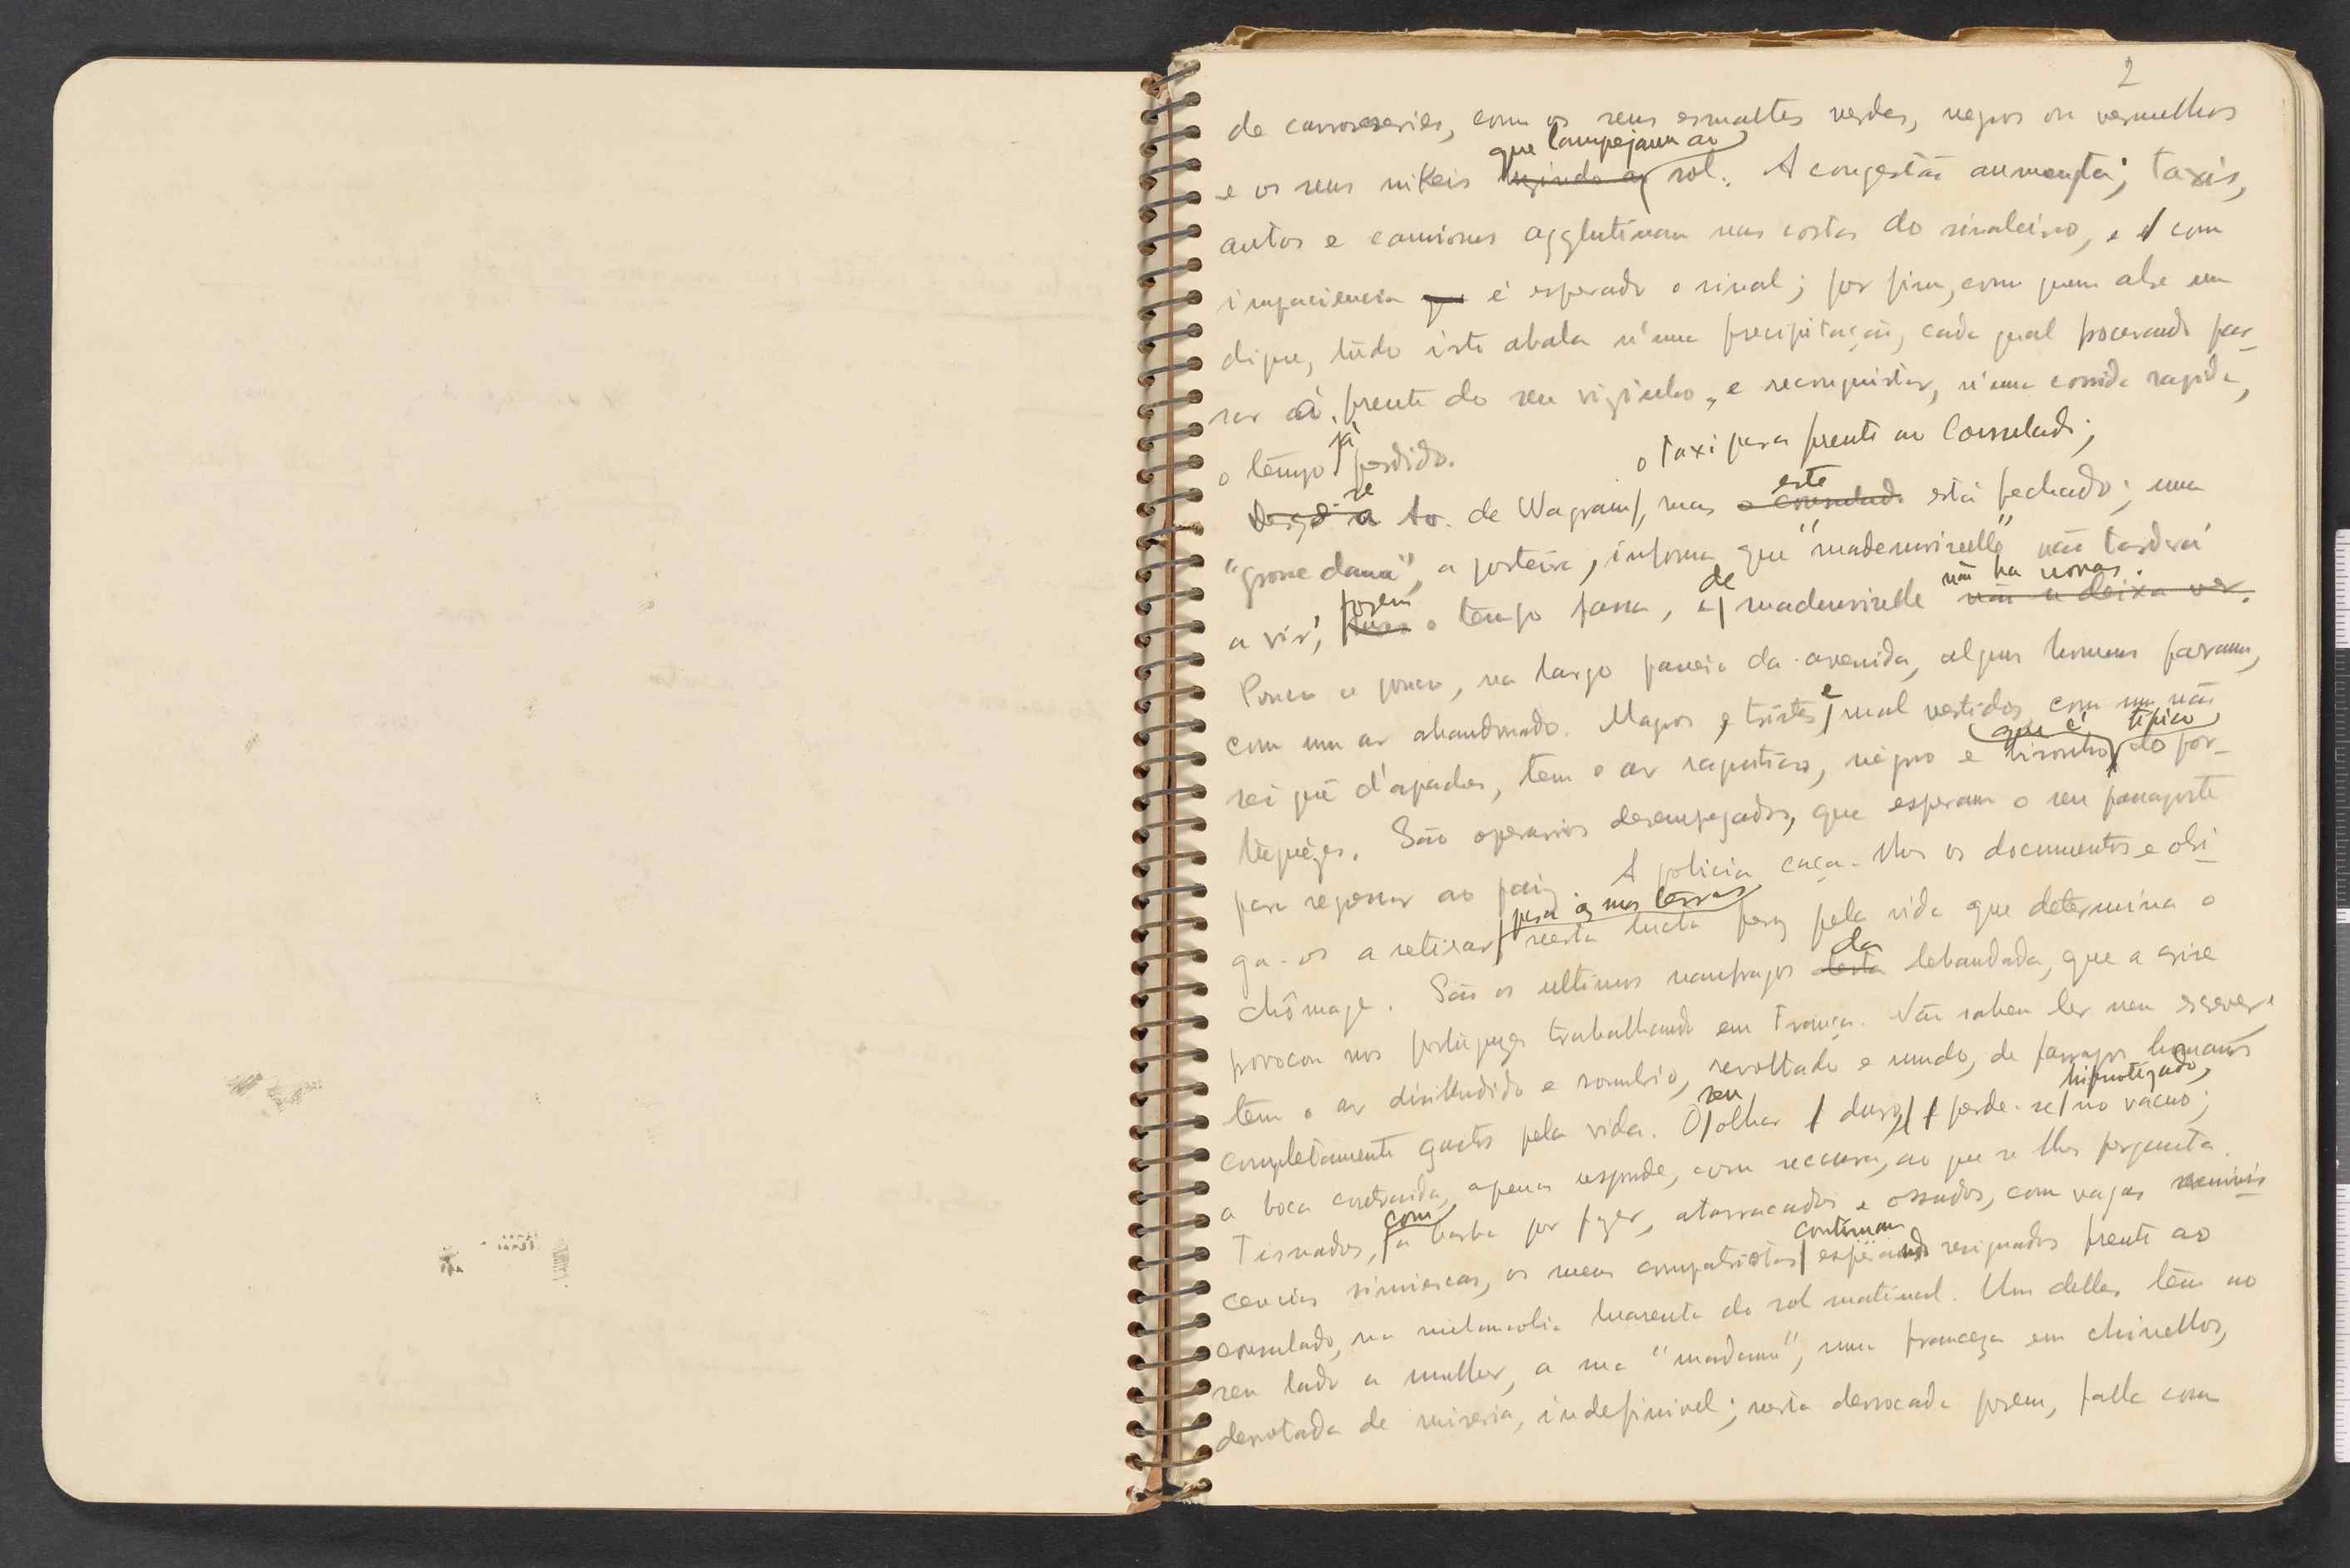 2
de carrosseries, com os seus esmaltes verdes, negros ou vermelhos
que lampejam ao
e os seus nikeis luzindo ao sol. A congestão aumenta; taxis,
autos e camions agglutinam nas costas do sinaleiro, e é com
impaciencia que é esperado o sinal; por fim, como quem abre um
dique, tudo isto abala n'uma precipitação, cada qual procurando pas-
sar á frente do seu vizinho, e reconquistar, n'uma corrida rapida,
já
o tempo perdido.
o taxi para frente ao Consulado;
este
Av. de Wagram, mas o consulado está fechado; uma
"grosse dame", a porteira, informa que "mademoiselle" não tardará
porem de não ha novas.
a vir; mas o tempo passa, e mademoiselle não se deixa ver.
Pouco a pouco, no largo passeio da avenida, alguns homens param,
com um ar abandonado. Magros, e tristes, e mal vestidos, com um não
que é tipico
sei quê d'apagados, tem o ar raputiço, negro e bisonho do por-
tuguêzes. São operarios desempregados, que esperam o seu passaporte
para regressar ao paiz. A policia caça-lhes os documentos e obri-
para as suas terras
ga-os a retirar nesta lucta feroz pela vida que determina o
da
chômage. São os ultimos naufragos desta debandada, que a crise
provocou nos portuguezes trabalhando em França. Não sabem ler nem escrever e
têm o ar desilludido e sombrio, revoltado e mudo, de farrapos humanos
seu hipnotizado,
completamente gastos pela vida. O olhar duro, perde-se no vácuo;
a boca contraida, apenas responde, com seccura, ao que se lhes pergunta.
com
Tisnados, a barba por fazer, atarracados e ossudos, com vagas reminis-
continuam
cencias simiescas, os meus compatriotas esperando resignados frente ao
consulado, na melancolia luarenta do sol matinal. Um delles têm ao
seu lado a mulher, a sua "madame", uma franceza em chinellos,
derrotada de miseria, indefinivel; nesta derrocada porem, falla com